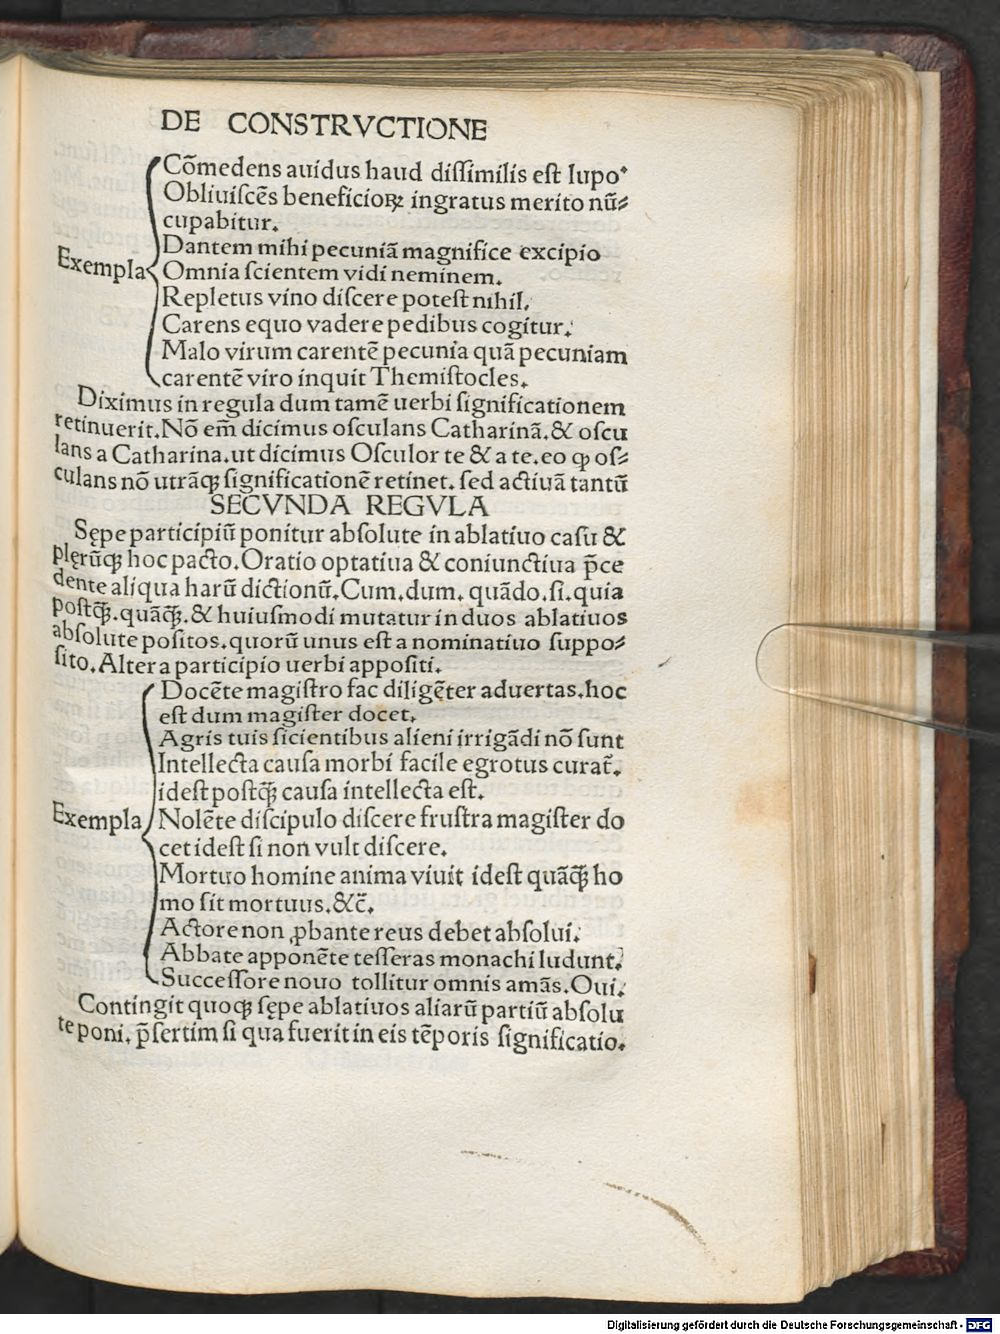 DE CONSTRVCTIONE
Cõmedens auidus haud diſſimilis eſt lupo
Obliuiſcẽs beneficioꝝ ingratus merito nũ⸗
cupabitur.
Dantem mihi pecuniã magnifice excipio
Exempla
Omnia ſcientem vidi neminem.
Repletus vino diſcere poteſt nihil.
Carens equo vadere pedibus cogitur.
Malo virum carentẽ pecunia quã pecuniam
carentẽ viro inquit Themiſtocles.
Diximus in regula dum tamẽ uerbi ſignificationem
retinuerit. Nõ em̃ dicimus oſculans Catharinã. & oſcu
lans a Catharina. ut dicimus Oſculor te & a te. eo ꝙ oſ⸗
culans nõ utrãqꝫ ſignificationẽ retinet. ſed actiuã tantũ
SECVNDA REGVLA
Sępe participiũ ponitur abſolute in ablatiuo caſu &
plęrũqꝫ hoc pacto. Oratio optatiua & coniunctiua p̃ce
dente aliqua harũ dictionũ. Cum. dum. quãdo. ſi. quia
poſtqꝫ̃. quãqꝫ̃. & huiuſmodi mutatur in duos ablatiuos
abſolute poſitos. quorũ unus eſt a nominatiuo ſuppo⸗
ſito. Alter a participio uerbi appoſiti.
Docẽte magiſtro fac diligẽter aduertas. hoc
eſt dum magiſter docet.
Agris tuis ſicientibus alieni irrigãdi nõ ſunt
Intellecta cauſa morbi facile egrotus curat̃.
ideſt poſtqꝫ̃ cauſa intellecta eſt.
Exempla
Nolẽte diſcipulo diſcere fruſtra magiſter do
cet ideſt ſi non vult diſcere.
Mortuo homine anima viuit ideſt quãqꝫ̃ ho
mo ſit mortuus. &c̃.
Actore non ꝓbante reus debet abſolui.
Abbate apponẽte teſſeras monachi ludunt.
Succeſſore nouo tollitur omnis amãs. Oui.
Contingit quoqꝫ ſępe ablatiuos aliarũ partiũ abſolu
te poni. p̃ſertim ſi qua fuerit in eis tẽporis ſignificatio.
Digitalisierung gefördert durch die Deutsche Forschungsgemeinschaft - DFG